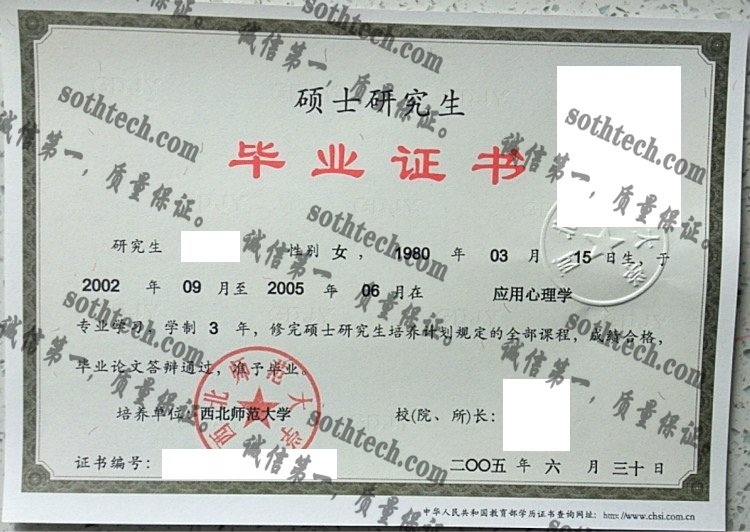 硕士研究生
毕业证书
研究生 性别 女 ， 1980 年 03 月 15 日生，于
2002 年 09 月至 2005 年 06 月在 应用心理学
专业学习，学制 3 年，修完硕士研究生培养计划规定的全部课程，成绩合格，
毕业论文答辩通过，准予毕业。
培养单位：西北师范大学 校(院、所)长：
西北师范大学
证书编号： 二〇〇五 年 六 月 三十 日
中华人民共和国教育部学历证书查询网址： http://www.chsi.com.cn
sothtech.com
诚信第一，质量保证。
sothtech.com
诚信第一，质量保证。
sothtech.com
诚信第一，质量保证。
sothtech.com
诚信第一，质量保证。
sothtech.com
诚信第一，质量保证。
sothtech.com
诚信第一，质量保证。
sothtech.com
诚信第一，质量保证。